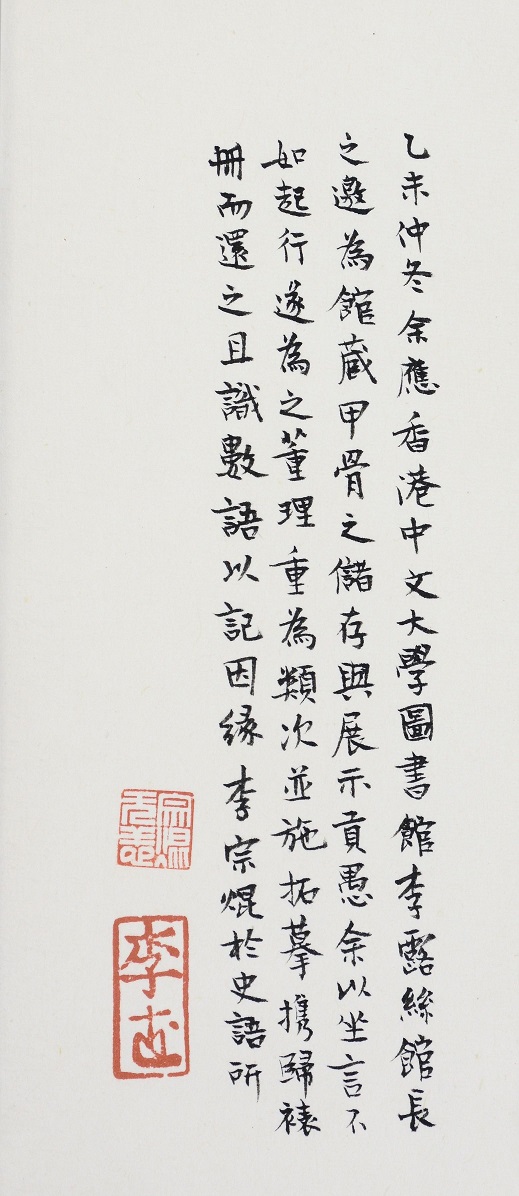 乙未仲冬余應香港中文大學圖書館李露絲館長
之邀為館藏甲骨之儲存與展示貢愚余以坐言不
如起行遂為之董理重為類次並施拓摹攜歸裱
冊而還之且識數語以記因緣李宗焜於史語所